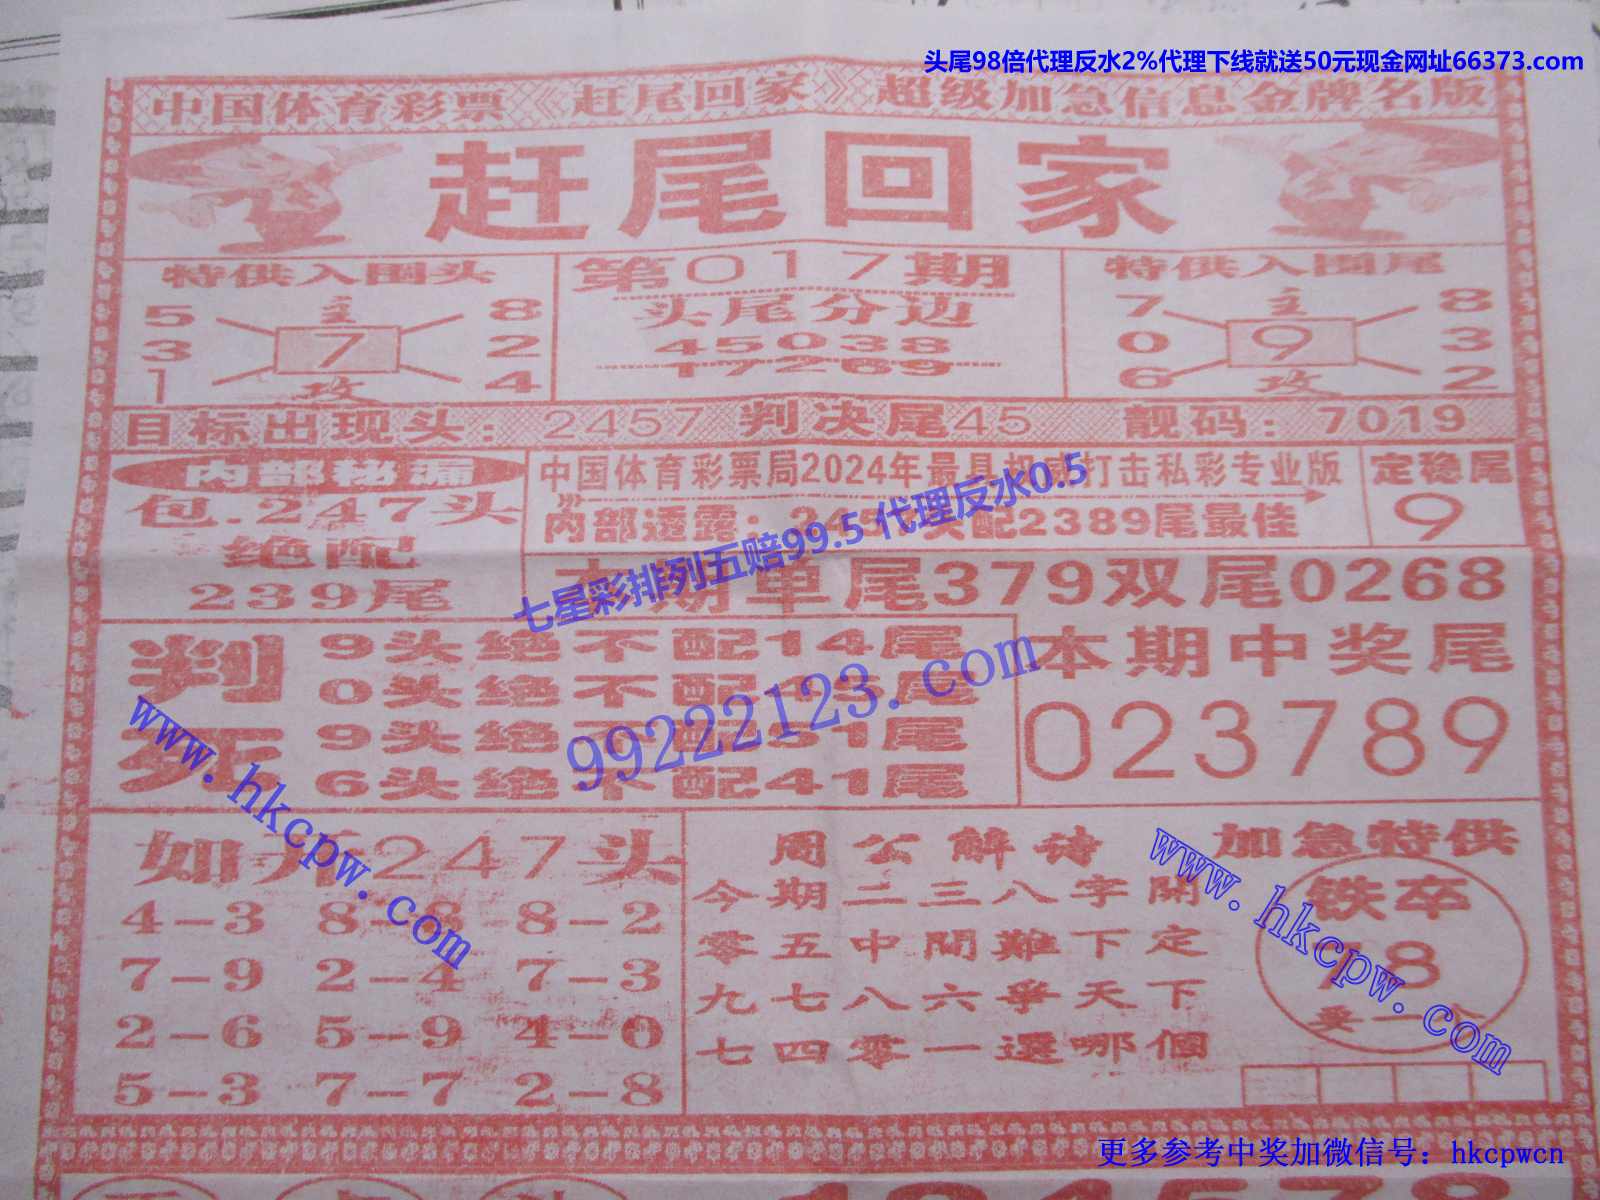 头尾98倍代理反水2%代理下线就送50元现金网址66373.com
中国体育彩票《赶尾回家》超级加急信息金牌名版
赶尾回家
特供入围头
5 主 8
3 7 2
1 攻 4
第017期
头尾分边
45038
17269
特供入围尾
7 主 8
0 9 3
6 攻 2
目标出现头：2457 判决尾45 靓码：7019
内部秘漏
包.247头
绝配
239尾
中国体育彩票局2024年最具权威打击私彩专业版
内部透露：2457头配2389尾最佳
定稳尾
9
本期单尾379双尾0268
七星彩排列五赔99.5 代理反水0.5
判死
9头绝不配14尾
0头绝不配
尾
9头绝不配
1尾
6头绝不配41尾
99222123.com
本期中奖尾
023789
www.hkcpw.com
如开247头
4-3 8-8 8-2
7-9 2-4 7-3
2-6 5-9 4-0
5-3 7-7 2-8
周公解诗
今期二三八字開
零五中間難下定
九七八六爭天下
七四零一選哪個
加急特供
铁卒
78
www.hkcpw.com
更多参考中奖加微信号：hkcpwcn